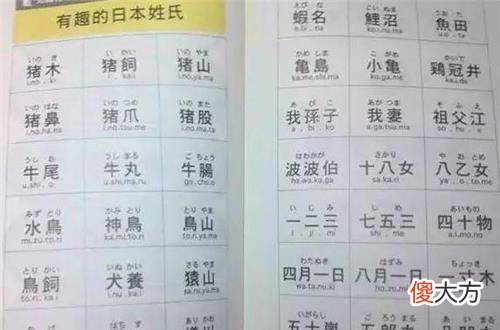 有趣的日本姓氏
いの き いの かい いの やま
猪木 猪飼 猪山
i.no . ki i . kai i.no.ya.ma
いの はな いの つめ いの また
猪鼻 猪爪 猪股
i.no.ha.na i.no.tsu.me i.no.ma.ta
うし お うし まる ご ちょう
牛尾 牛丸 牛腸
u.shi . o u.shi.ma.ru go.cho.u
みず とり かみ とり とり やま
水鳥 神鳥 鳥山
mi.zu.to.ri ka.mi.to.ri to.ri.ya.ma
とり かい いぬ かい さる やま
鳥飼 犬養 猿山
to.ri.kai i.nu.kai
えび な こい ぬま うお た
蝦名 鯉沼 魚田
e.bi . na
かめ しま こ がめ かいで
亀島 小亀 鶏冠井
ka.me.shi.ma ko.ga.me ka.i.de
あ び こ あが つま そ ふ え
我孫子 我妻 祖父江
a . bi . ko a.ga.tsu.ma so . fu . e
はわかが と がり や おと め
波波伯 十八女 八乙女
ha.wa.ka.ga
い じ み し め あいもの
一二三 七五三 四十物
i . ji . mi shi . me a.i.mo.no
わたぬき はずみ
四月一日 八月一日 一寸木
wa.ta.nu.ki
傻大方